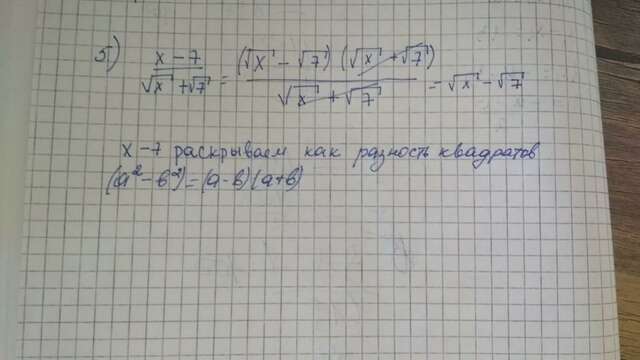 5) (x-7)/(√x+√7) = ((√x-√7)(√x+√7))/(√x+√7) = √x-√7
x-7 раскрываем как разность квадратов
(a²-в²)=(a-в)(a+в)